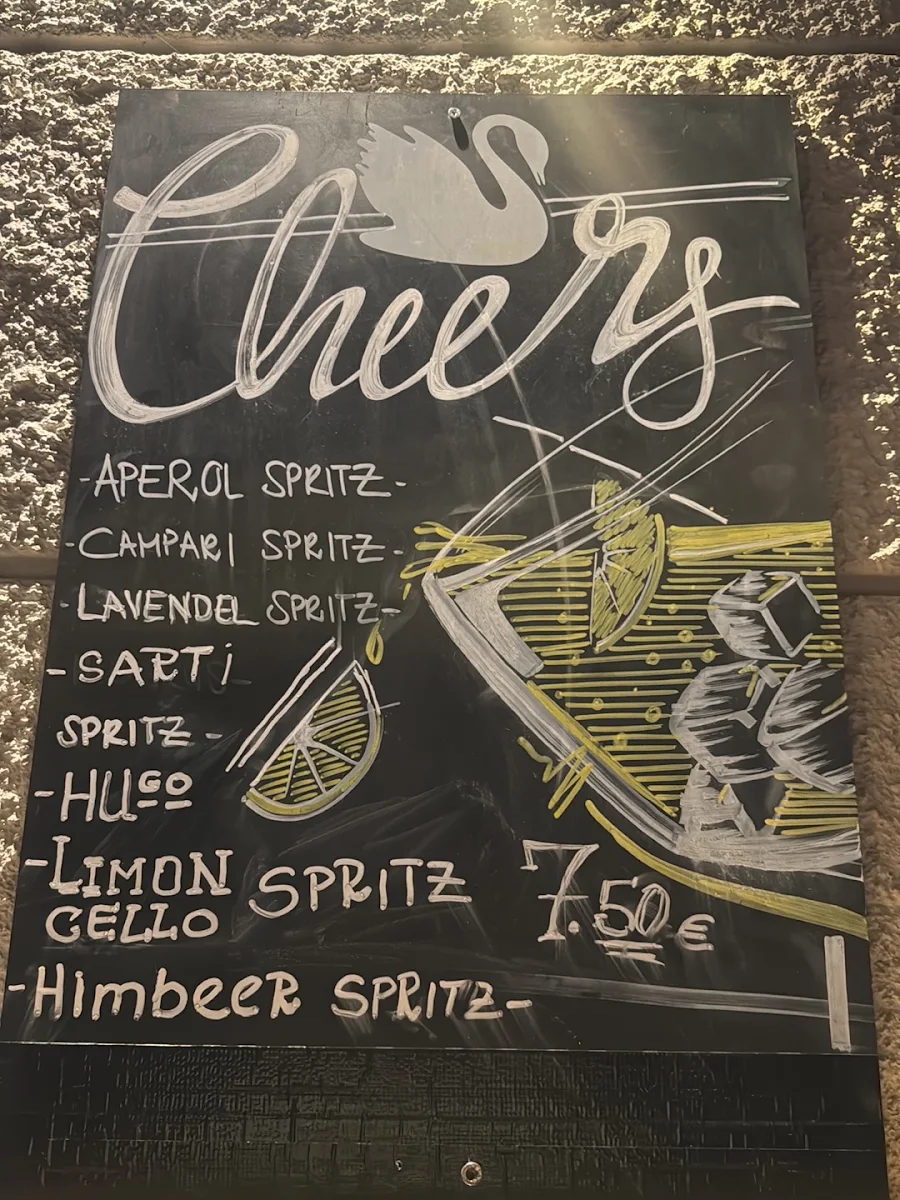 Cheers
-APEROL SPRITZ-
-CAMPARI SPRITZ-
-LAVENDEL SPRITZ-
-SARTi
SPRITZ-
-HUGO
-LIMON
CELLO SPRITZ 7.50 €
-HimbeeR SPRITZ-